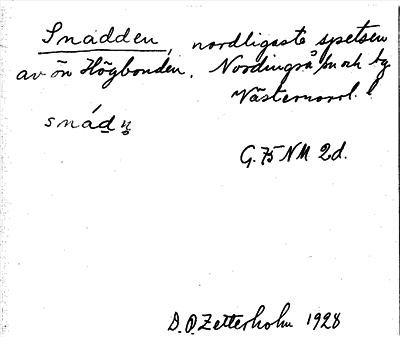 Snadden, nordligaste spetsen
av ön Högbonden. Nordingrå sn och tg
Västernorrl. l
snád̲n̥
G. 75 NM 2d.
D. O. Zetterholm 1928